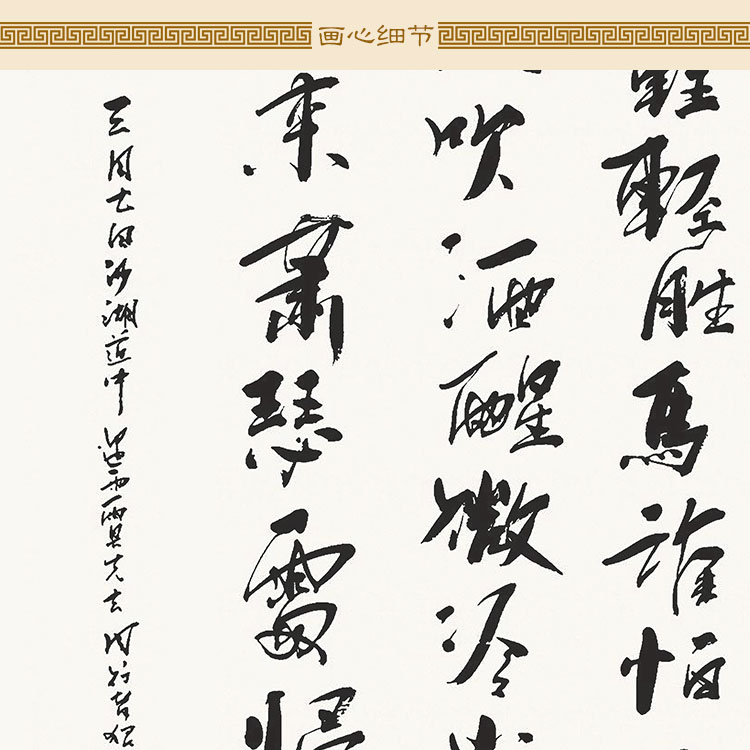 画心细节
轻胜马谁怕
吹酒醒微冷
来萧瑟处归
三月七日沙湖道中遇雨雨具先去同行皆狼